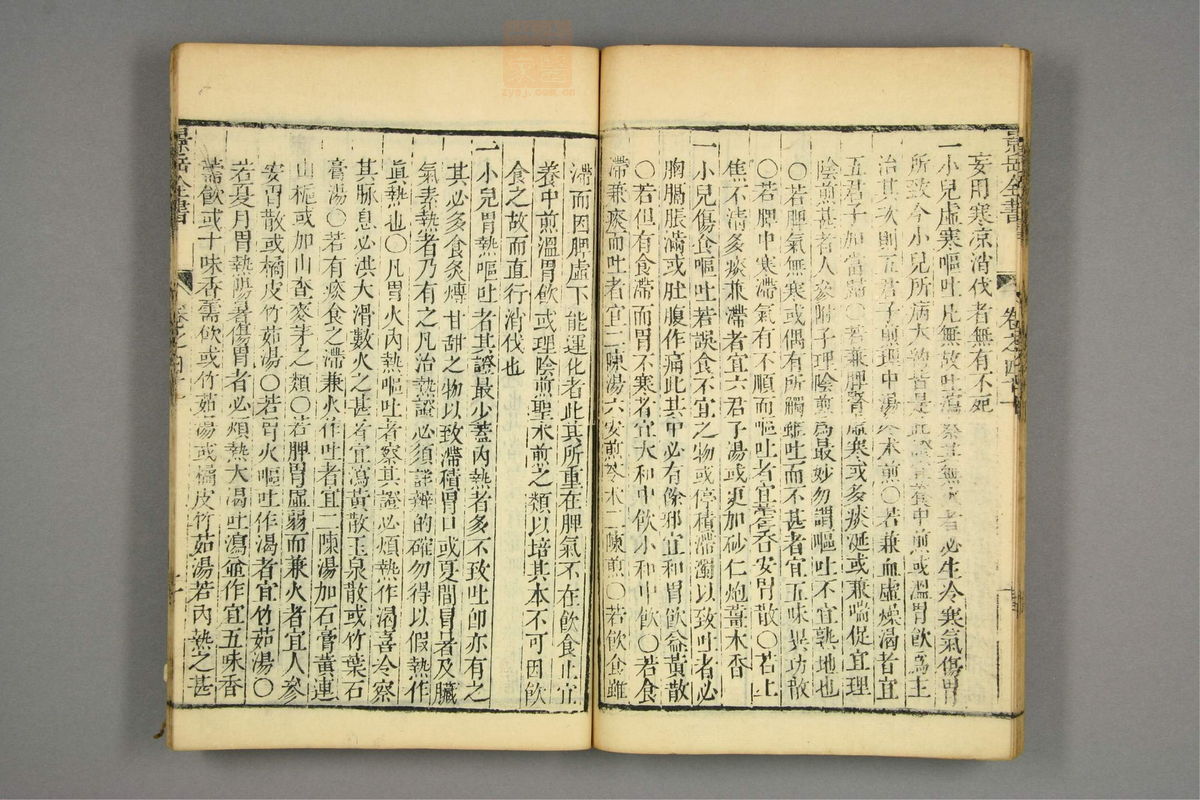 妄用寒凉消伐者無有不死
一小兒虛寒嘔吐凡無故吐瀉察其無火者必生冷寒氣傷胃
所致今小兒所病大約皆是此證宜養中煎或溫胃飲爲主
治其次則五君子煎理中湯冷水煎○若兼血虛燥渴者宜
五君子加當歸○若兼脾腎虛寒或多痰涎或兼喘促宜理
陰煎甚者人參附子理陰煎爲最妙勿謂嘔吐不宜熟地也
○若脾氣無寒或偶有所觸雖吐而不甚者宜五味異功散
○若脾中寒滯氣有不順而嘔吐者宜藿香安胃散○若上
焦不清多痰兼滯者宜六君子湯或更加砂仁炮薑木香
一小兒傷食嘔吐若誤食不宜之物或停積滯濁以致吐者必
胸膈脹滿或肚腹作痛此其中必有餘邪宜和胃飲益黃散
○若但有食滯而胃不寒者宜大和中飲小和中飲○若食
滯兼痰而吐者宜二陳湯六安煎苓朮二陳煎○若飲食雖
滯而因脾虛不能運化者此其所重在脾氣不在飲食止宜
養中煎溫胃飲或理陰煎聖朮煎之類以培其本不可因飲
食之故而直行消伐也
一小兒胃熱嘔吐者其證最少蓋內熱者多不致吐卽亦有之
其必多食炙煿甘甜之物以致滯積胃口或夏間冒暑及臟
氣素熱者乃有之凡治熱證必須詳辨的確勿得以假熱作
眞熱也○凡胃火內熱嘔吐者察其證必煩熱作渴喜冷察
其脉息必洪大滑數火之甚者宜瀉黃散玉泉散或竹葉石
膏湯○若有痰食之滯兼火作吐者宜二陳湯加石膏黃連
山梔或加山查麥芽之類○若脾胃虛弱而兼火者宜人參
安胃散或橘皮竹茹湯○若胃火嘔吐作渴者宜竹茹湯○
若夏月胃熱陽暑傷胃者必煩熱大渴吐瀉並作宜五味香
薷飲或十味香薷飲或竹茹湯或橘皮竹茹湯若內熱之甚
景岳全書
卷之四十一
景岳全書
卷之四十一